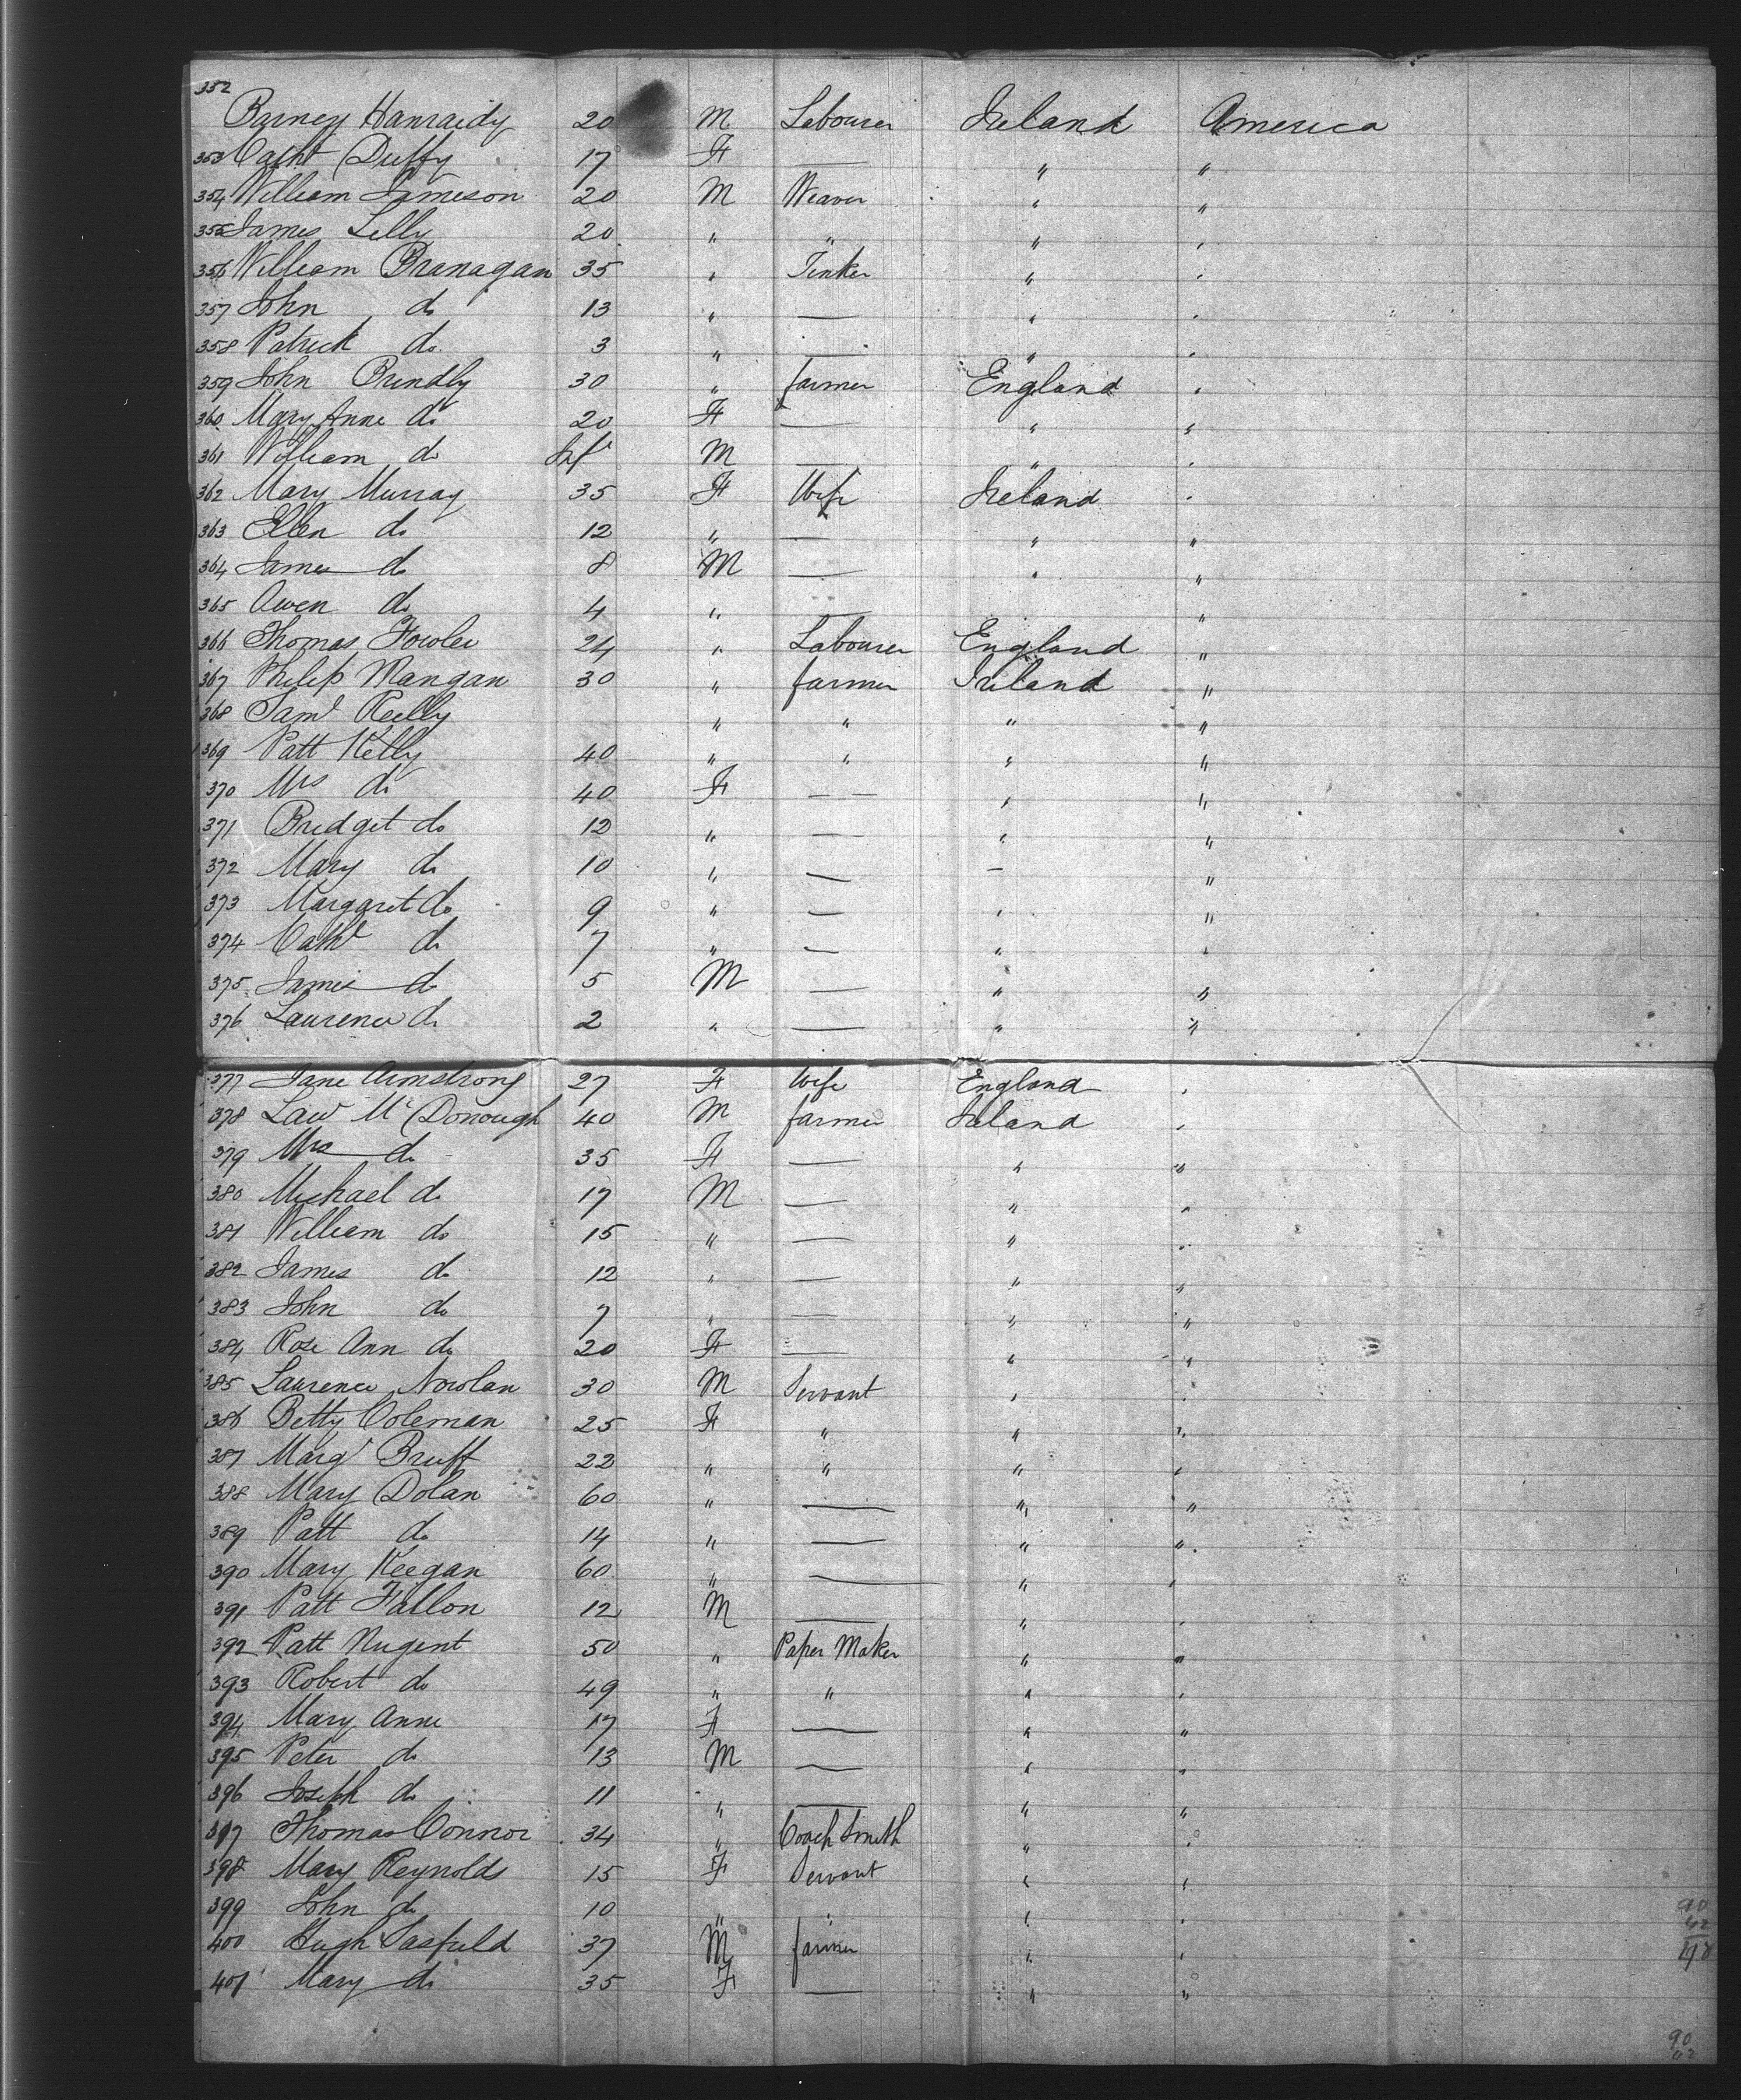 352 Barney Hanraidy 20 M Labourer Ireland America
353 Cathe Duffy 17 F — " "
354 William Jameson 20 M Weaver " "
355 James Lilly 20 " " " "
356 William Branagan 35 " Tinker " "
357 John do 13 " — " "
358 Patrick do 3 " — " "
359 John Brindly 30 " farmer England "
360 Mary Anne do 20 F — " "
361 William do Inft M — " "
362 Mary Murray 35 F Wife Ireland "
363 Ellen do 12 " — " "
364 James do 8 M — " "
365 Owen do 4 " — " "
366 Thomas Fowler 24 " Labourer England "
367 Philip Mangan 30 " farmer Ireland "
368 Saml Reilly " " " "
369 Patt Kelly 40 " " " "
370 Mrs do 40 F — — " "
371 Bridget do 12 " — " "
372 Mary do 10 " — — "
373 Margaret do 9 " — " "
374 Cathe do 7 " — " "
375 James do 5 M — " "
376 Laurence do 2 " — " "
377 Jane Armstrong 27 F Wife England "
378 Law Mc Donough 40 M farmer Ireland "
379 Mrs do 35 F — " "
380 Michael do 17 M — " "
381 William do 15 " — " "
382 James do 12 " — " "
383 John do 7 " — " "
384 Rose Ann do 20 F — " "
385 Laurence Nowlan 30 M Servant " "
386 Betty Coleman 25 F " " "
387 Margt Bruff 22 " " " "
388 Mary Dolan 60 " — " "
389 Patt do 14 " — " "
390 Mary Keegan 60 " — " "
391 Patt Fallon 12 M — " "
392 Patt Nugent 50 " Paper Maker " "
393 Robert do 49 " " " "
394 Mary Anne 17 F — " "
395 Peter do 13 M — " "
396 Joseph do 11 " — " "
397 Thomas Connor 34 " Coach Smith " "
398 Mary Reynolds 15 F Servant " "
399 John do 10 " " " "
400 Hugh Sasfield 37 M farmer " "
401 Mary do 35 F — " "
90
42
90
42